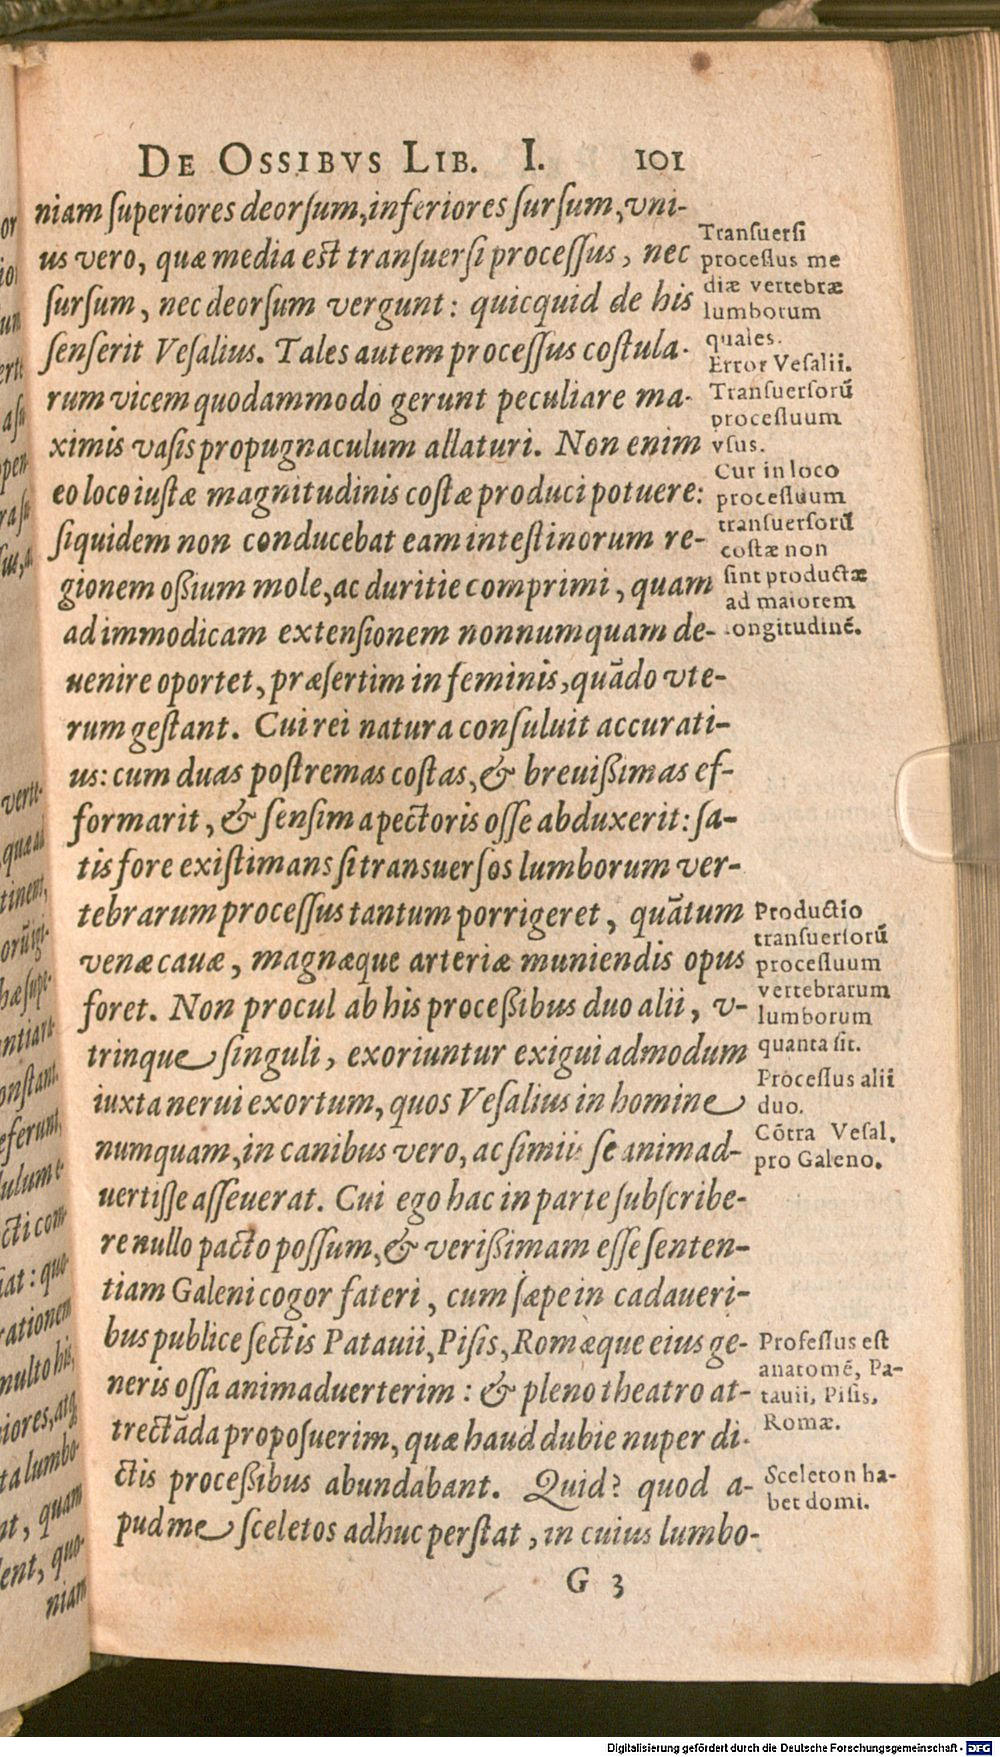 DE OSSIBVS LIB. I. 101
niam ſuperiores deorſum, inferiores ſurſum, vni-
us vero, quæ media est tranſuerſi proceſſus, nec
ſurſum, nec deorſum vergunt: quicquid de his
ſenſerit Veſalius. Tales autem proceſſus coſtula-
rum vicem quodammodo gerunt peculiare ma-
ximis vaſis propugnaculum allaturi. Non enim
eo loco iuſtæ magnitudinis coſtæ produci potuere:
ſiquidem non conducebat eam inteſtinorum re-
gionem oßium mole, ac duritie comprimi, quam
ad immodicam extenſionem nonnumquam de-
uenire oportet, præſertim in feminis, quādo vte-
rum geſtant. Cui rei natura conſuluit accurati-
us: cum duas poſtremas coſtas, & breuißimas ef-
formarit, & ſenſim a pectoris oſſe abduxerit: ſa-
tis fore exiſtimans ſi transuerſos lumborum ver-
tebrarum proceſſus tantum porrigeret, quātum
venæ cauæ, magnæque arteriæ muniendis opus
foret. Non procul ab his proceßibus duo alii, v-
trinque ſinguli, exoriuntur exigui admodum
iuxta nerui exortum, quos Veſalius in homine
numquam, in canibus vero, ac ſimiis ſe animad-
uertiſſe aſſeuerat. Cui ego hac in parte ſubſcribe-
re nullo pacto poſſum, & verißimam eſſe ſenten-
tiam Galeni cogor fateri, cum ſæpe in cadaueri-
bus publice ſectis Patauii, Piſis, Romæque eius ge-
neris oſſa animaduerterim: & pleno theatro at-
trectāda propoſuerim, quæ haud dubie nuper di-
ctis proceßibus abundabant. Quid? quod a-
pud me ſceletos adhuc perſtat, in cuius lumbo-
G 3
Tranſuerſi
proceſſus me
diæ vertebræ
lumborum
quales.
Error Veſalii.
Tranſuerſorū
proceſſuum
vſus.
Cur in loco
proceſſuum
tranſuerſorū
coſtæ non
ſint productæ
ad maiorem
longitudinē.
Productio
tranſuerſorū
proceſſuum
vertebrarum
lumborum
quanta ſit.
Proceſſus alii
duo.
Cōtra Veſal.
pro Galeno.
Profeſſus eſt
anatomē, Pa-
tauii, Piſis,
Romæ.
Sceleton ha-
bet domi.
verte-
quæ ad
tinent,
onſtant,
eferunt,
cti com-
iat: quo-
rationem
multo his,
iores, atq;
ta lumbo-
nt, quam
lent, quo-
niam
Digitalisierung gefördert durch die Deutsche Forschungsgemeinschaft - DFG